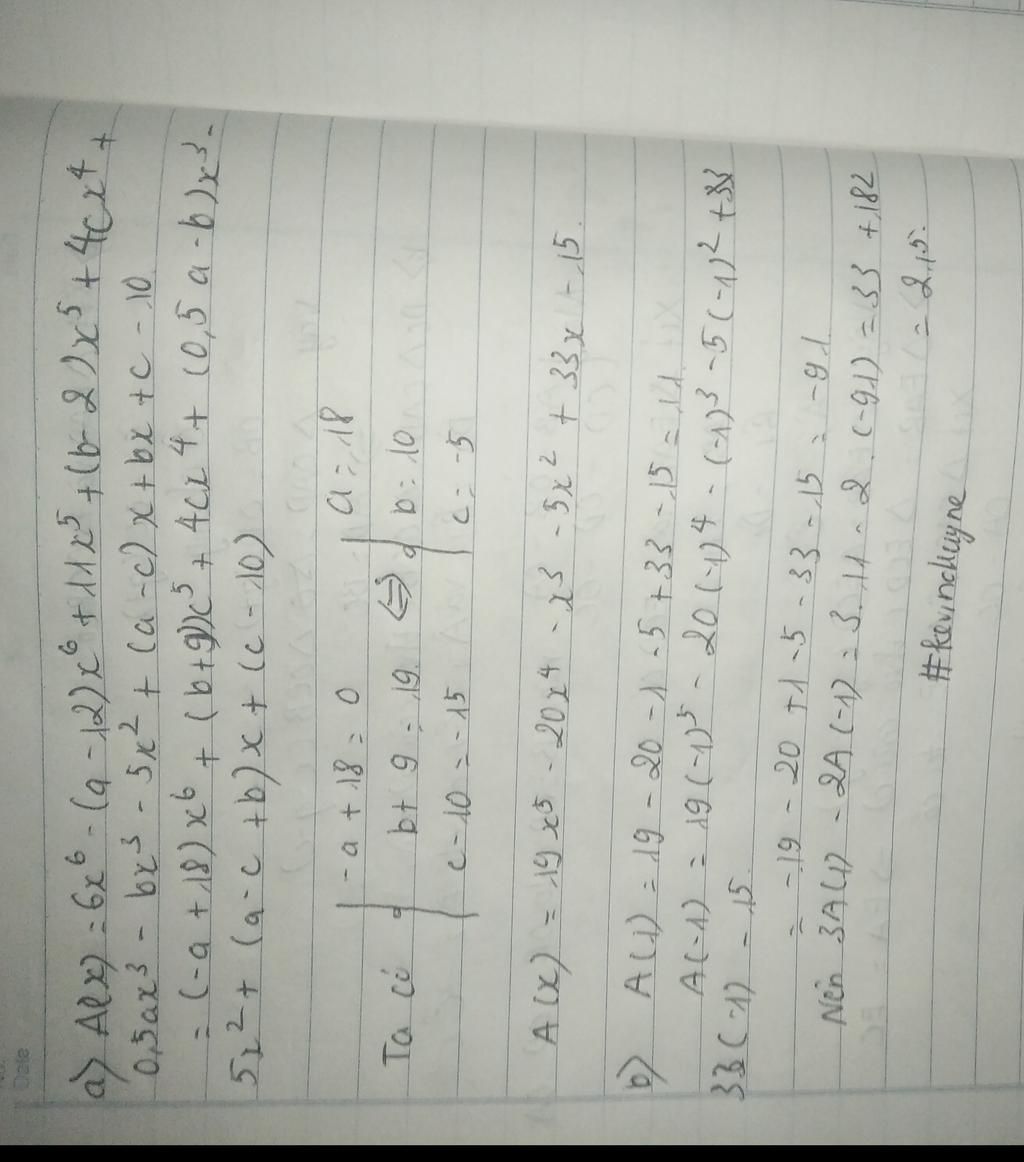 Date
a) A(x) = 6x⁶ - (a - 12)x⁶ + 11x⁵ + (b - 2)x⁵ + 4cx⁴ +
0,5ax³ - bx³ - 5x² + (a - c)x + bx + c - 10
= (-a + 18)x⁶ + (b + 9)x⁵ + 4cx⁴ + (0,5a - b)x³ -
5x² + (a - c + b)x + (c - 10)
-a + 18 = 0 a = 18
Ta có { b + 9 = 19 ⇔ { b = 10
c - 10 = -15 c = -5
A(x) = 19x⁵ - 20x⁴ - x³ - 5x² + 33x - 15.
b) A(1) = 19 - 20 - 1 - 5 + 33 - 15 = 11
A(-1) = 19(-1)⁵ - 20(-1)⁴ - (-1)³ - 5(-1)² + 33
33(-1) - 15
= -19 - 20 + 1 - 5 - 33 - 15 = -91
Nên 3A(1) - 2A(-1) = 3.11 - 2.(-91) = 33 + 182
= 215.
#kevinchuyne